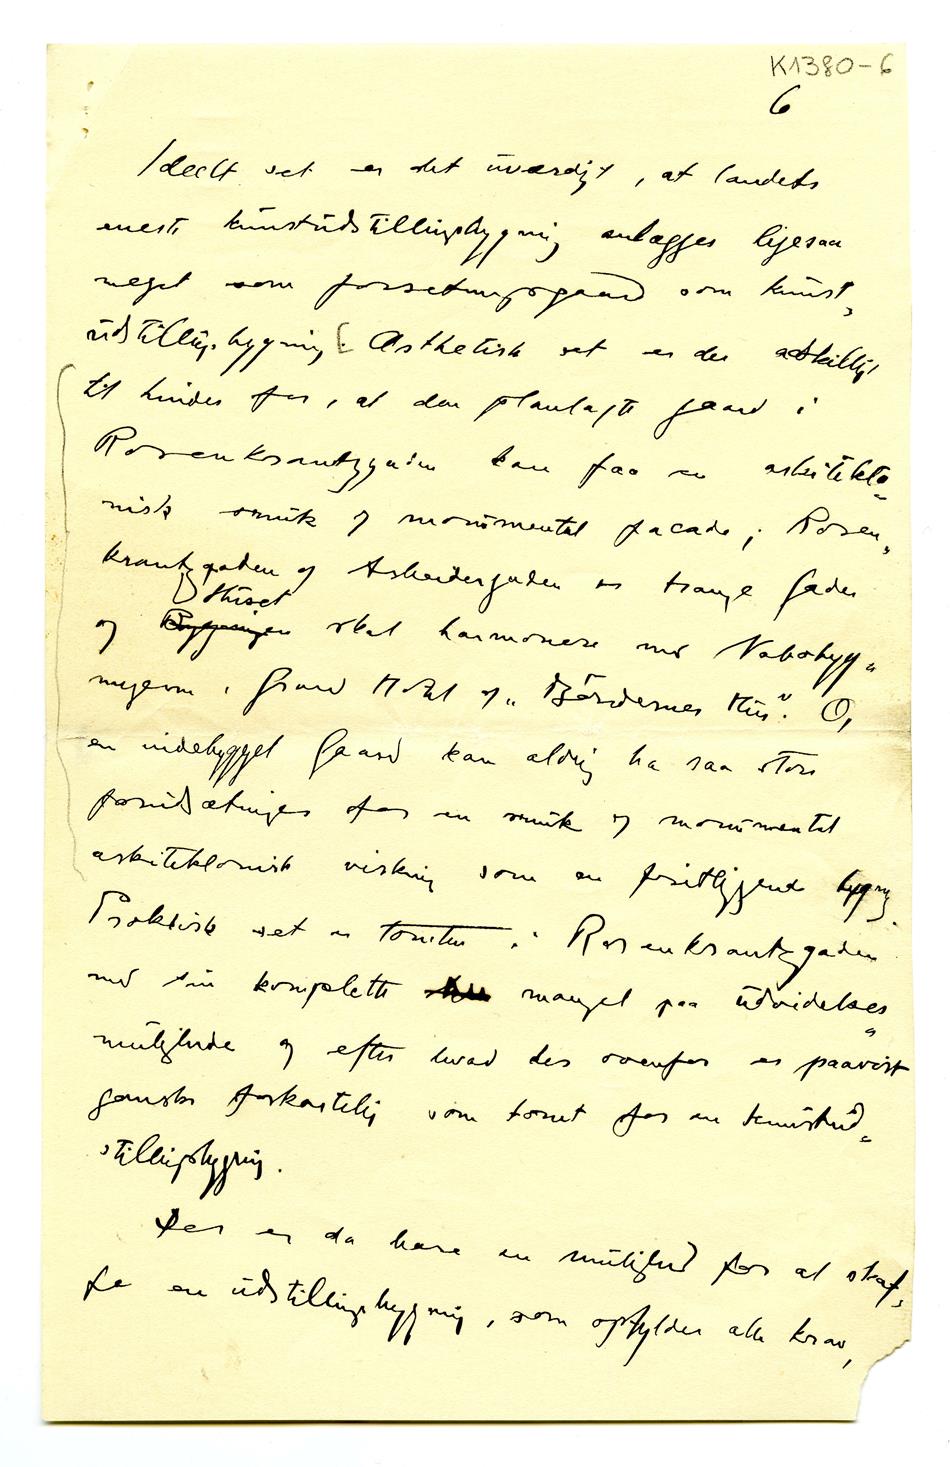 K1380-6
6
Ideelt set er det uværdigt, at landets
eneste kunstudstillingsbygning anlægges ligesaa
meget som forretningsgaard som kunst-
udstillingsbygning. [Æsthetisk set er der adskilligt
til hinder for, at den planlagte gaard i
Rosenkrantzgaden kan faa en arkitekto-
nisk smuk og monumental facade; Rosen-
krantzgaden og Arbeidergaden er trange Gader
Huset
og Bygningen skal harmonere med Nabobyg-
ningerne, Grand Hotel og "Bøndernes Hus". Og
en indebygget Gaard kan aldrig ha saa store
forudsætninger for en smuk og monumental
arkitektonisk virkning som en fritliggende bygning.
Praktisk set er tomten i Rosenkrantzgaden
med sin komplette mangel paa udvidelses-
mulighede og efter hvad der ovenfor er paavist
ganske forkastelig som tomt for en kunstud-
stillingsbygning.
Der er da bare en mulighed for at skaf-
fe en udstillingsbygning, som opfylder alle krav,